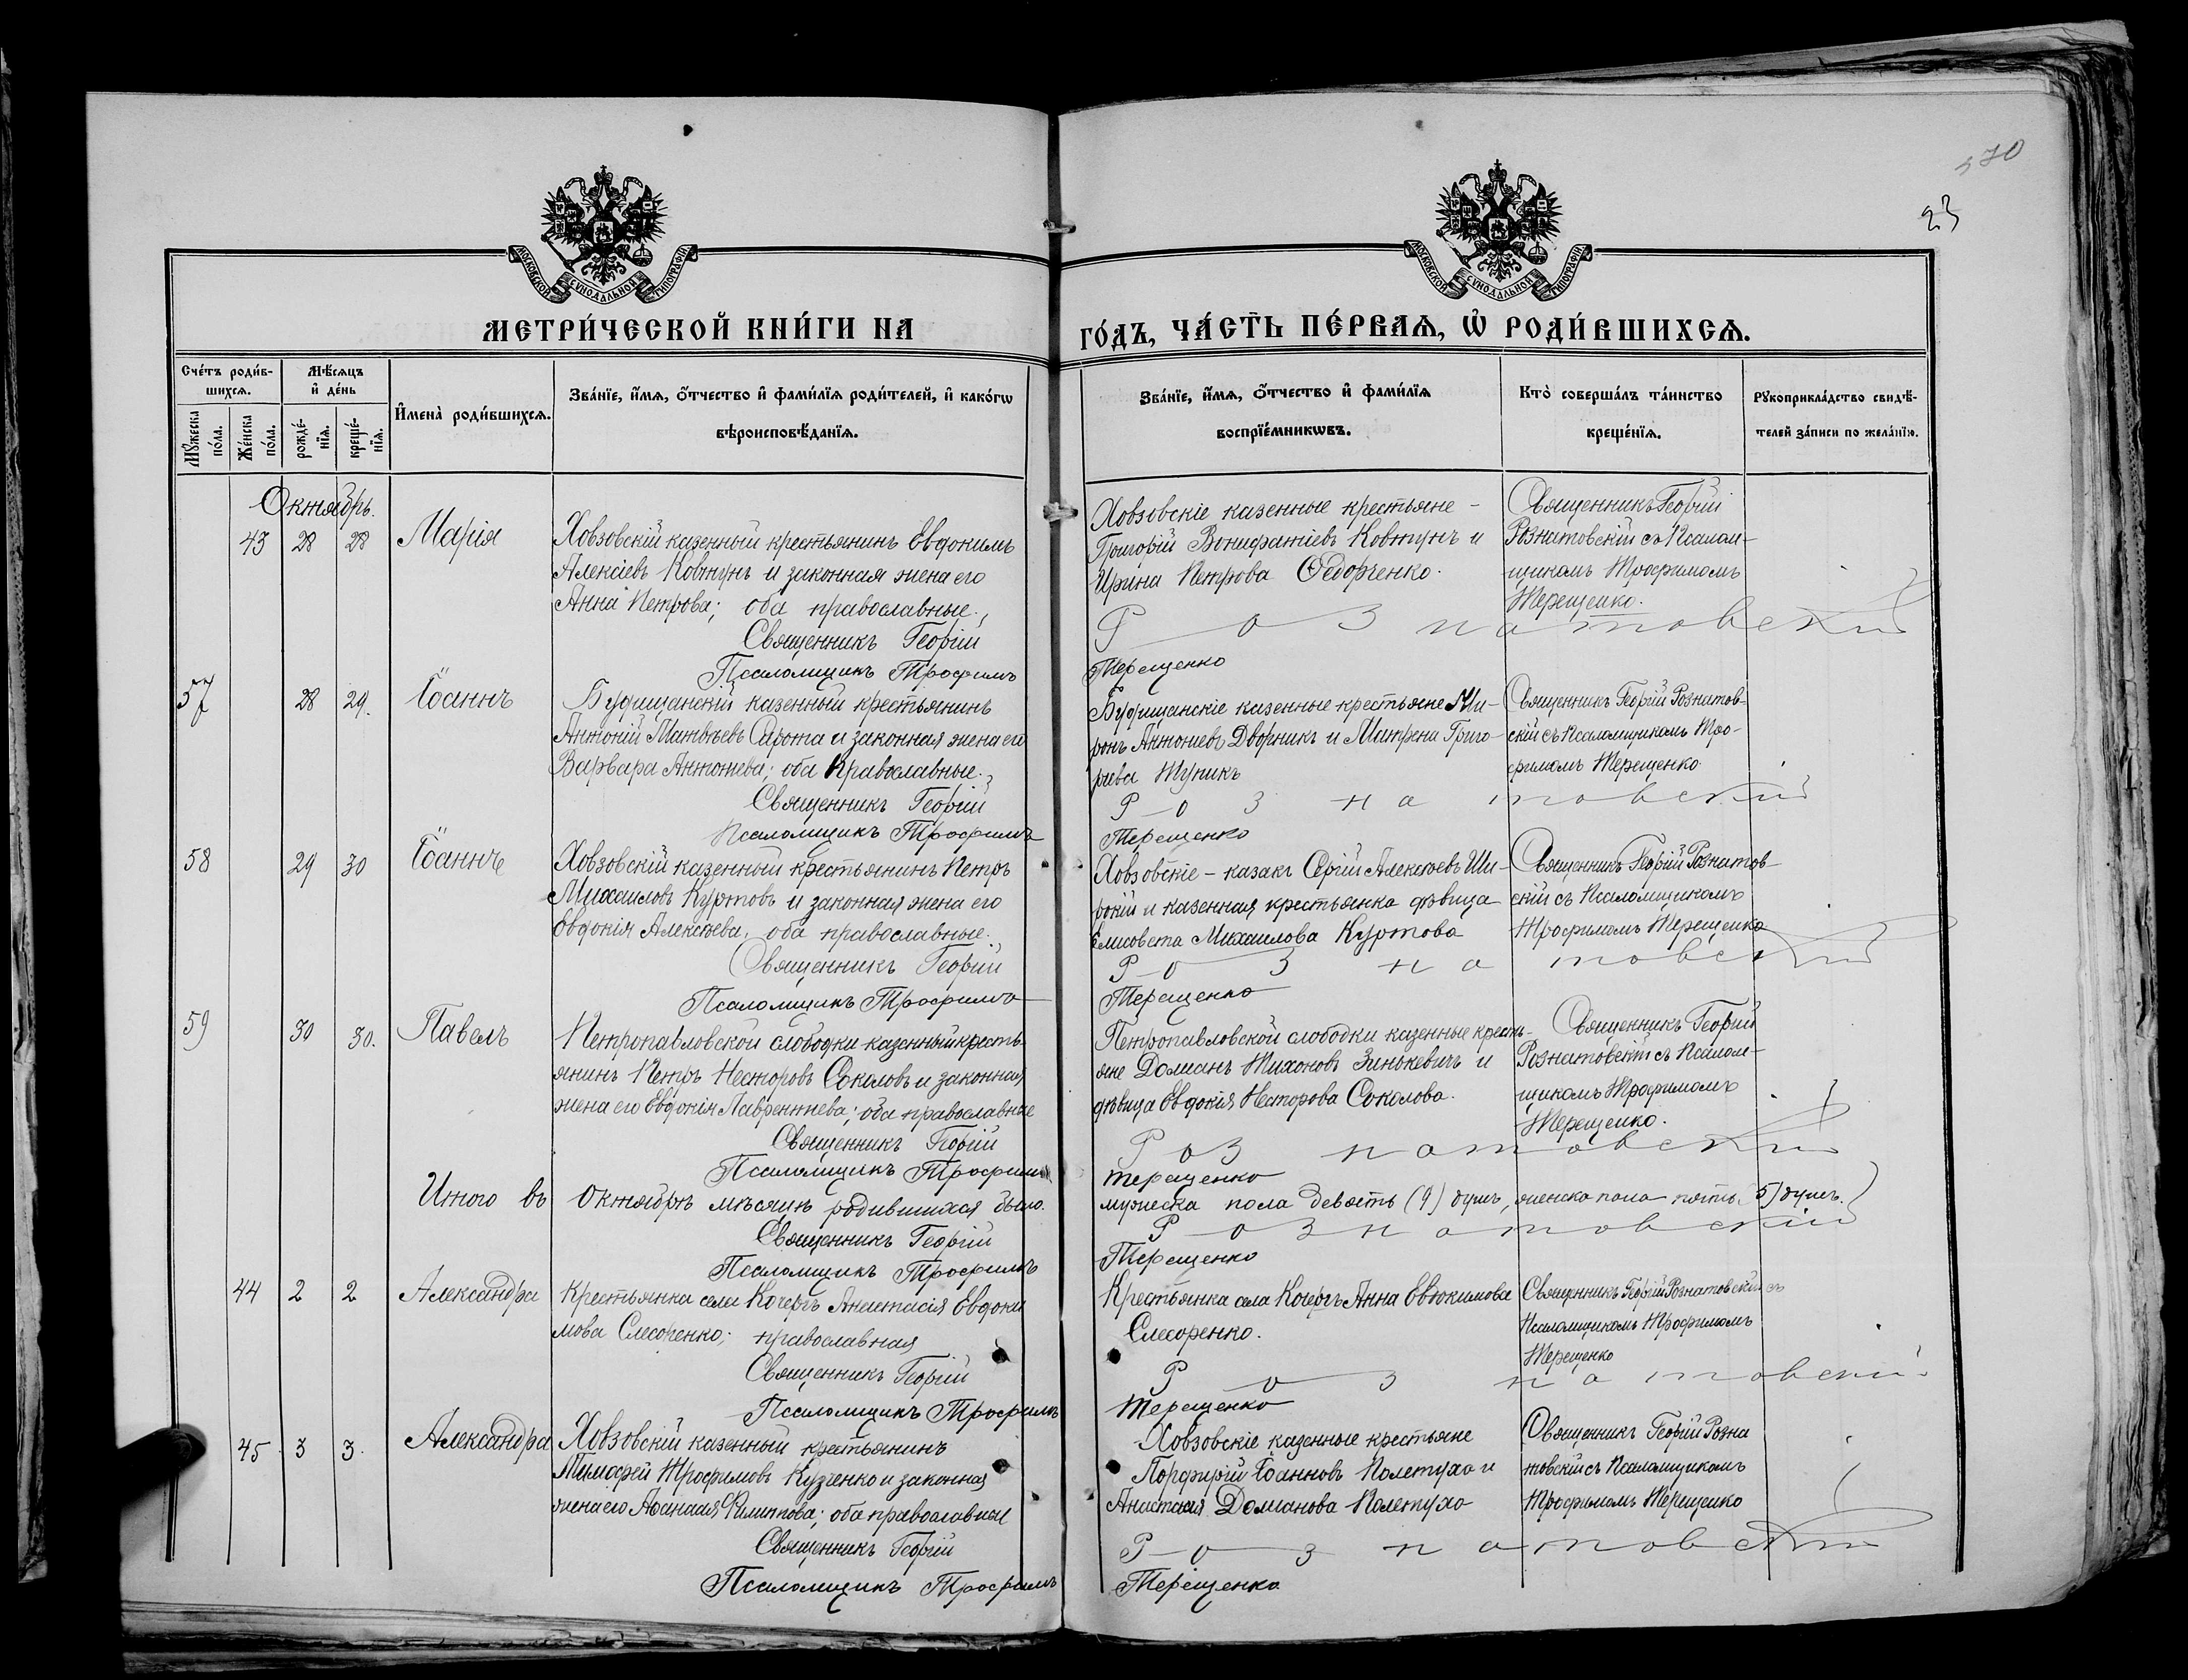 570
23
МОСКОВСКОЙ СѴНОДАЛЬНОЙ ТИПОГРАФІИ
МОСКОВСКОЙ СѴНОДАЛЬНОЙ ТИПОГРАФІИ
МЕТРИ́ЧЕСКОЙ КНИ́ГИ НА
ГО́ДЪ, ЧА́СТЬ ПЕ́РВАѦ, Ѡ҆ РОДИ́ВШИХСѦ.
Сче́тъ роди́в-
шихсѧ.
Мꙋ́жеска по́ла.
Же́нска по́ла.
Мѣ́сѧцъ
и҆ де́нь
рожде́-
нїѧ.
креще́-
нїѧ.
И҆мена̀ роди́вшихсѧ.
Зва́нїе, и҆́мѧ, ѻ҆́тчество и҆ фами́лїѧ роди́телей, и҆ како́гѡ
вѣроисповѣ́данїѧ.
Зва́нїе, и҆́мѧ, ѻ҆́тчество и҆ фами́лїѧ
воспрїе́мникѡвъ.
Кто̀ соверша́лъ та́инство
креще́нїѧ.
Рꙋкоприкла́дство свидѣ́-
телей за́писи по жела́нїю.
Октябрь.
43 28 28 Марія
Ховзовскій казенный крестьянинъ Евдокимъ
Алексіевъ Ковтунъ и законная жена его
Анна Петрова; оба православные.
Священникъ Георгій
Псаломщикъ Трофимъ
Ховзовскіе казенные крестьяне -
Григорій Вонифатіевъ Ковтунъ и
Ирина Петрова Ѳедорченко.
Священникъ Георгій
Рознатовскій съ Псалом-
щикомъ Трофимомъ
Терещенко.
Рознатовскій
Терещенко
57 28 29. Іоаннъ
Буфищанскій казенный крестьянинъ
Антоній Матвѣевъ Сирота и законная жена его
Варвара Антонiева; оба православные.
Священникъ Георгій
Псаломщикъ Трофимъ
Буфищанскіе казенные крестьяне Ми-
ронъ Антоніевъ Дворникъ и Матрена Григо-
рiева Жупикъ
Священникъ Георгій Рознатов-
скій съ Псаломщикомъ Тро-
фимомъ Терещенко
Рознатовскій
Терещенко
58 29 30 Іоаннъ
Ховзовскій казенный крестьянинъ Петръ
Михаиловъ Куртовъ и законная жена его
Евдокія Алексѣева, оба православные.
Священникъ Георгій
Псаломщикъ Трофимъ
Ховзовскіе - казакъ Сергій Алексѣевъ Ши-
рокій и казенная крестьянка дѣвица
Елисовета Михаилова Куртова
Священникъ Георгій Рознатов-
скій съ Псаломщикомъ
Трофимомъ Терещенко
Рознатовскій
Терещенко
59 30 30. Павелъ
Петропавловской слободки казенный кресть-
янинъ Петръ Несторовъ Соколовъ и законная
жена его Евдокія Лаврентiева; оба православные
Священникъ Георгій
Псаломщикъ Трофимъ
Петропавловской слободки казенные кресть-
яне Доміанъ Тихоновъ Зинькевичъ и
дѣвица Евдокія Несторова Соколова.
Священникъ Георгій
Рознатовскій съ Псалом-
щикомъ Трофимомъ
Терещенко.
Рознатовскій
Терещенко
Итого въ Октябрѣ мѣсяцѣ родившихся было.
мужеска пола девять (9) душъ, женска пола пять (5) душъ.
Священникъ Георгій
Псаломщикъ Трофимъ
Рознатовскій
Терещенко
44 2 2 Александра
Крестьянка села Кочергъ Анастасія Евдоки
мова Слесоренко; православная
Священникъ Георгій
Псаломщикъ Трофимъ
Крестьянка села Кочергъ Анна Евдокимова
Слесоренко.
Священникъ Георгій Рознатовскій съ
Псаломщикомъ Трофимомъ
Терещенко
Рознатовскій
Терещенко
45 3 3. Александра
Ховзовскій казенный крестьянинъ
Тимофей Трофимовъ Кузченко и законная
жена его Аѳанасія Филиппова; оба православные
Священникъ Георгій
Псаломщикъ Трофимъ
Ховзовскіе казенные крестьяне
Порфирій Іоанновъ Полетухо и
Анастасія Доміанова Полетухо
Священникъ Георгій Розна
товскій съ Псаломщикомъ
Трофимомъ Терещенко
Рознатовскій
Терещенко